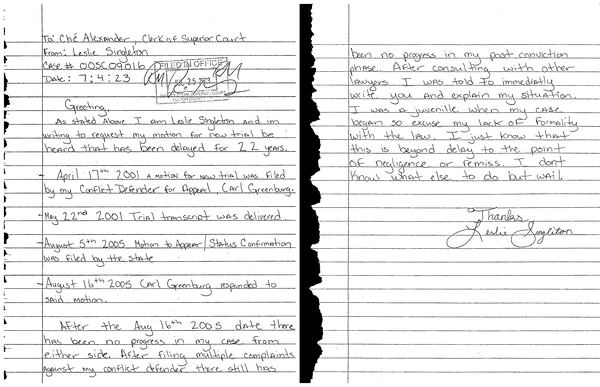 To: Ché Alexander, Clerk of Superior Court
From: Leslie Singleton
Case # 00SC09016
Date: 7.4.23
FILED IN OFFICE
25 2023
Greeting,
As stated Above I am Leslie Singleton and im
writing to request my motion for new trial be
heard that has been delayed for 22 years.
- April 17th 2001 A motion for new trial was filed
by my Conflict Defender for Appeal, Carl Greenburg.
- May 22nd 2001 Trial transcript was delivered.
- August 5th 2005 Motion to Appear / Status Confirmation
was filed by the state
- August 16th 2005 Carl Greenburg responded to
said motion.
After the Aug 16th 2005 date there
has been no progress in my case from
either side. After filing multiple complaints
against my conflict defender there still has
been no progress in my post conviction
phase. After consulting with other
lawyers I was told to immediatly
write you and explain my situation.
I was a juvenille when my case
began so excuse my lack of formality
with the law. I just know that
this is beyond delay to the point
of negligence or remiss. I dont
know what else to do but wait.
Thanks
Leslie Singleton